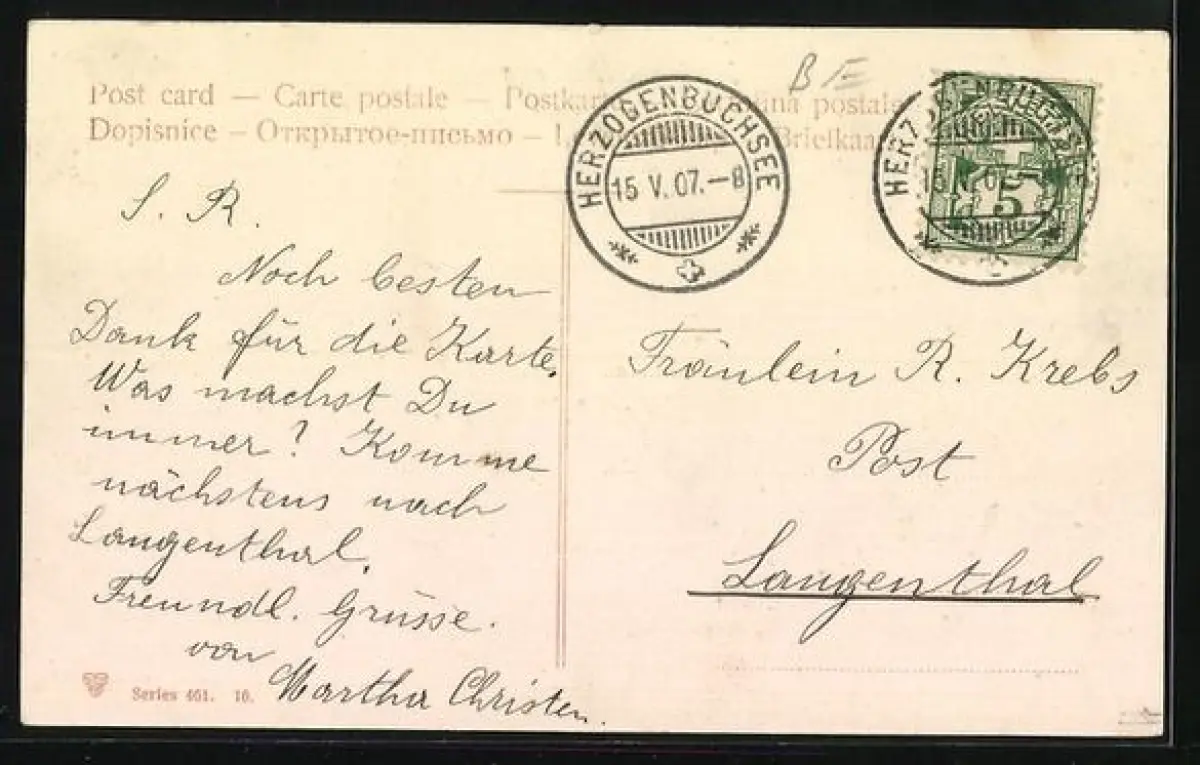 Post card — Carte postale — Postkar postale
Dopisnice — Открытое-письмо — Briefkaa
B E
HERZOGENBUCHSEE
15 V. 07. — 8
HERZOGENBU
5
S. R.
Noch besten
Dank für die Karte.
Was machst Du
immer? Komme
nächstens nach
Langenthal.
Freundl. Grüsse.
von
Martha Christen.
Fräulein R. Krebs
Post
Langenthal
Series 461. 16.